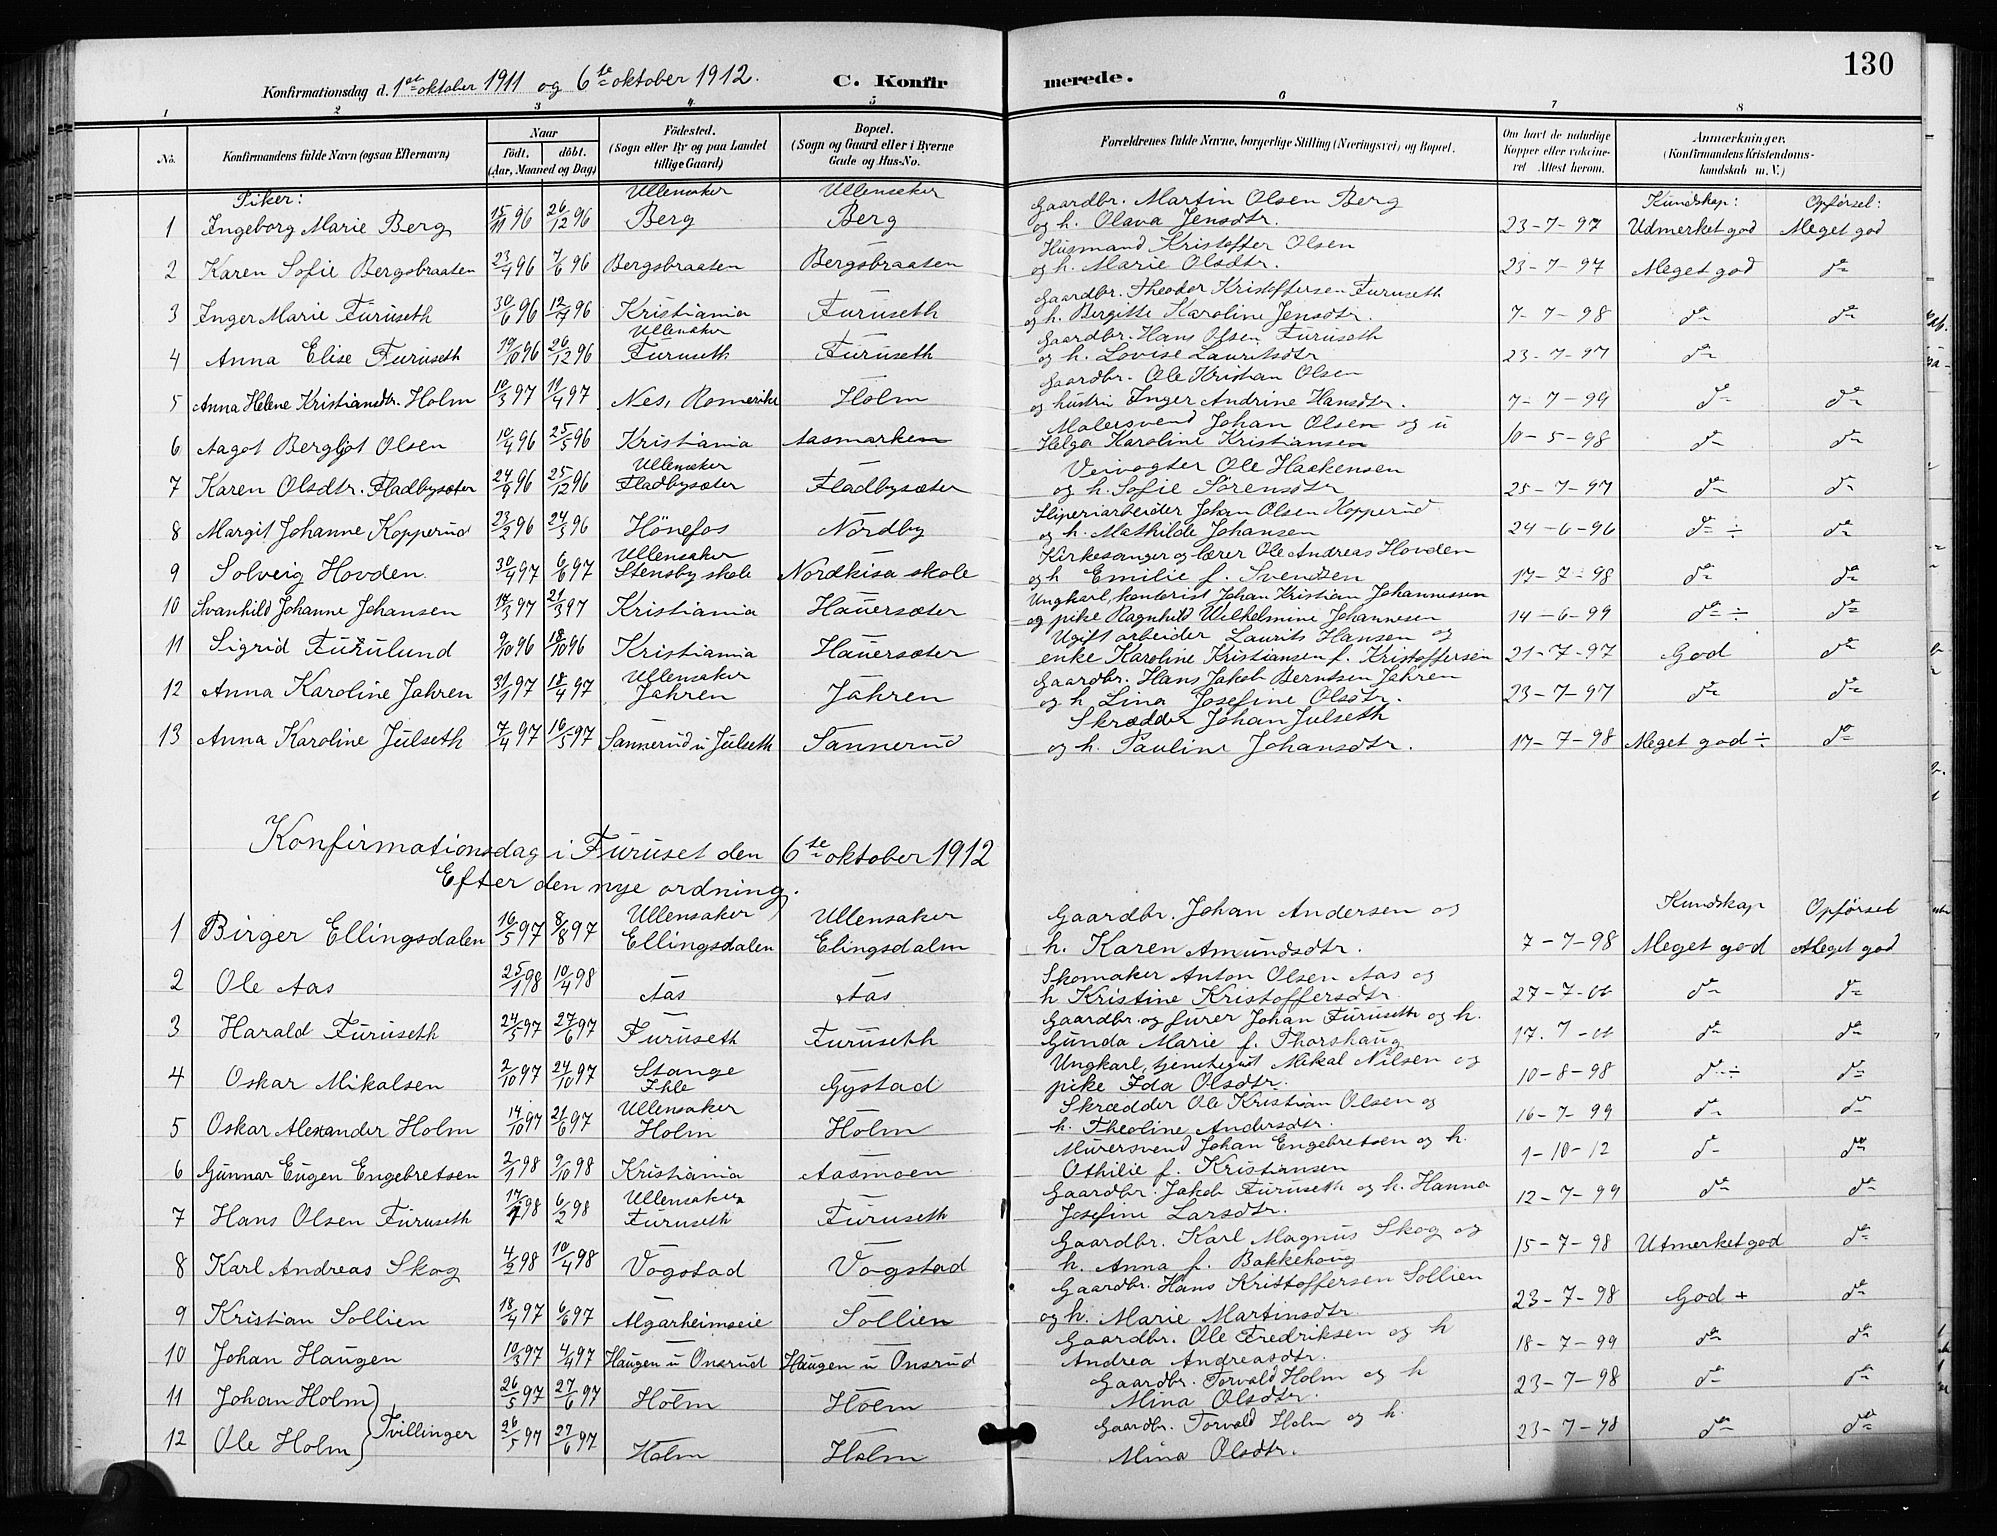 130
Konfirmationsdag d. 1ste oktober 1911 og 6te oktober 1912. C. Konfirmerede.
1 2 3 4 5 6 7 8
No. Konfirmandens fulde Navn (ogsaa Efternavn) Naar födt. döbt. (Aar, Maaned og Dag) Födested. (Sogn eller By og paa Landet tillige Gaard) Bopæl. (Sogn og Gaard eller i Byerne Gade og Hus-No. Forældrenes fulde Navne, borgerlige Stilling (Næringsvei) og Bopæl. Om havt de naturlige Kopper eller vakcineret Attest herom. Anmærkninger, (Konfirmandens Kristendomskundskab m. V.)
Piker: Ullensaker Ullensaker Gaardbr. Martin Olsen Berg Kundskap: Opførsel:
1 Ingeborg Marie Berg 15/11 96 26/12 96 Berg Berg og h. Olava Jensdtr. 23-7-97 Udmerket god Meget god
Husmand Kristoffer Olsen
2 Karen Sofie Bergsbraaten 23/4 96 7/6 96 Bergsbraaten Bergsbraaten og h. Marie Olsdtr. 23-7-97 Meget god do
Gaardbr. Theodor Kristoffersen Furuseth
3 Inger Marie Furuseth 30/6 96 12/7 96 Kristiania Furuseth og h. Birgitte Karoline Jensdtr. 7-7-98 do do
Ullensaker Gaardbr. Hans Olsen Furuseth
4 Anna Elise Furuseth 19/10 96 26/12 96 Furuseth Furuseth og h. Lovise Lauritsdtr 23-7-97 do
Gaardbr. Ole Kristian Olsen
5 Anna Helene Kristiansdtr. Holm 10/3 97 19/4 97 Nes, Romerike Holm og hustru Inger Andrine Hansdtr. 7-7-99 do do
Malersvend Johan Olsen og u
6 Aagot Bergljot Olsen 10/4 96 25/5 96 Kristiania Aasmarken Helga Karoline Kristiansen 10-5-98 do do
Ullensaker Veivogter Ole Haakensen
7 Karen Olsdtr. Fladbysæter 24/9 96 25/12 96 Fladbysæter Fladbysæter og h. Sofie Sörensdtr 25-7-97 do do
Sliperiarbeider Johan Olsen Kopperud
8 Margit Johanne Kopperud 23/2 96 24/5 96 Hönefos Nordby og h. Mathilde Johansen 24-6-96 do ÷ do
Ullensaker Kirkesanger og lærer Ole Andreas Hovden
9 Solveig Hovden. 30/4 97 6/6 97 Stensby skole Nordkisa skole og h Emilie f. Svendsen 17-7-98 do do
Ungkarl, kontorist Johan Kristian Johannessen
10 Svanhild Johanne Johansen 14/3 97 21/3 97 Kristiania Hauersæter og pike Ragnhild Wilhelmine Johannesen 14-6-99 do ÷ do
Ugift arbeider Laurits Hansen og
11 Sigrid Furulund 9/10 96 18/10 96 Kristiania Hauersæter enke Karoline Kristiansen f. Kristoffersen 21-7-97 God do
Ullensaker Gaardbr. Hans Jakob Berntsen Jahren
12 Anna Karoline Jahren 31/1 97 18/4 97 Jahren Jahren og h Lina Josefine Olsdtr. 23-7-97 do do
Skrædder Johan Julseth
13 Anna Karoline Julseth 7/4 97 16/5 97 Sannerud u Julseth Sannerud og h. Pauline Johansdtr. 17-7-98 Meget god ÷ do
Konfirmationsdag i Furuset den 6te oktober 1912
Efter den nye ordning.
Ullensaker Ullensaker Gaardbr. Johan Andersen og Kundskap Opførsel
1 Birger Ellingsdalen 16/5 97 8/8 97 Ellingsdalen Elingsdalen h. Karen Amundsdtr. 7-7-98 Meget god Meget god
Skomaker Anton Olsen Aas og
2 Ole Aas 25/1 98 10/4 98 Aas Aas h Kristine Kristoffersdtr 27-7-01 do do
Gaardbr. og furer Johan Furuseth og h.
3 Harald Furuseth 24/5 97 27/6 97 Furuseth Furuseth Gunda Marie f. Thorshaug 17-7-01 do do
Stange Ungkarl, tjenstegut Mikal Nilsen og
4 Oskar Mikalsen 2/10 97 24/10 97 Ihle Gystad pike Ida Olsdtr. 10-8-98 do ÷ do
Ullensaker Skrædder Ole Kristian Olsen og
5 Oskar Alexander Holm 14/10 97 21/6 97 Holm Holm h. Theoline Andersdtr. 16-7-99 do do
Murersvend Johan Engebretsen og h.
6 Gunnar Eugen Engebretsen 2/1 98 9/10 98 Kristiania Aasmoen Othilie f. Kristiansen 1-10-12 do do
Ullensaker Gaardbr. Jakob Furuseth og h. Hanna
7 Hans Olsen Furuseth 17/1 98 6/2 98 Furuseth Furuseth Josefine Larsdtr. 12-7-99 do do
Gaardbr. Karl Magnus Skog og
8 Karl Andreas Skog 4/2 98 10/4 98 Vogstad Vogstad h. Anna f. Bakkehoug 15-7-98 Utmerket god do
Gaardbr. Hans Kristoffersen Sollien
9 Kristian Sollien 18/4 97 6/6 97 Algarheimseie Sollien og h. Marie Martinsdtr. 23-7-98 God + do
Gaardbr. Ole Fredriksen og h
10 Johan Haugen 10/3 97 4/4 97 Haugen u Onsrud Haugen u Onsrud Andrea Andreasdtr. 18-7-99 do do
Gaardbr. Torvald Holm og h
11 Johan Holm 26/5 97 27/6 97 Holm Holm Mina Olsdtr. 23-7-98 do do
Tvillinger Gaardbr. Torvald Holm og h.
12 Ole Holm 26/5 97 27/6 97 Holm Holm Mina Olsdtr. 23-7-98 do do